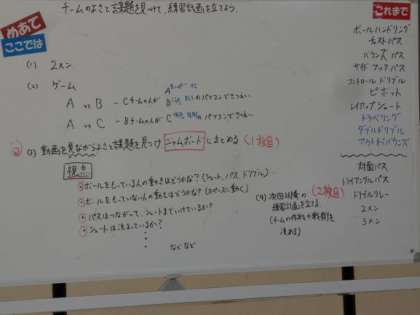 めあて
ここでは
チームのよさと課題を見つけて、練習計画を立てよう。
(1) 2メン
(2) ゲーム
A vs B - Cチームの人が
A vs C - Bチームの人が
のパソコンでさつえい
のパソコンでさつえい
(3) 動画を見ながらよさと課題を見つけ ジャムボードにまとめる (1枚目)
視点
・ボールをもっている人の動きはどうかな?(シュート、パス、ドリブル)
・ボールをもっていない人の動きはどうかな?(スペースに動く)
・パスはつながって、シュートまでいけているか?
・シュートは決まっているか?
などなど
(4) 次回以降の (2枚目)
練習計画を立てる
(チームの作戦や戦術を
決める)
これまで
ボールハンドリング
チェストパス
バウンズパス
サイドフックパス
コントロールドリブル
ピボット
レイアップシュート
トラベリング
ダブルドリブル
アウトオブバウンズ
対面パス
トライアングルパス
ドリブルリレー
2メン
3メン